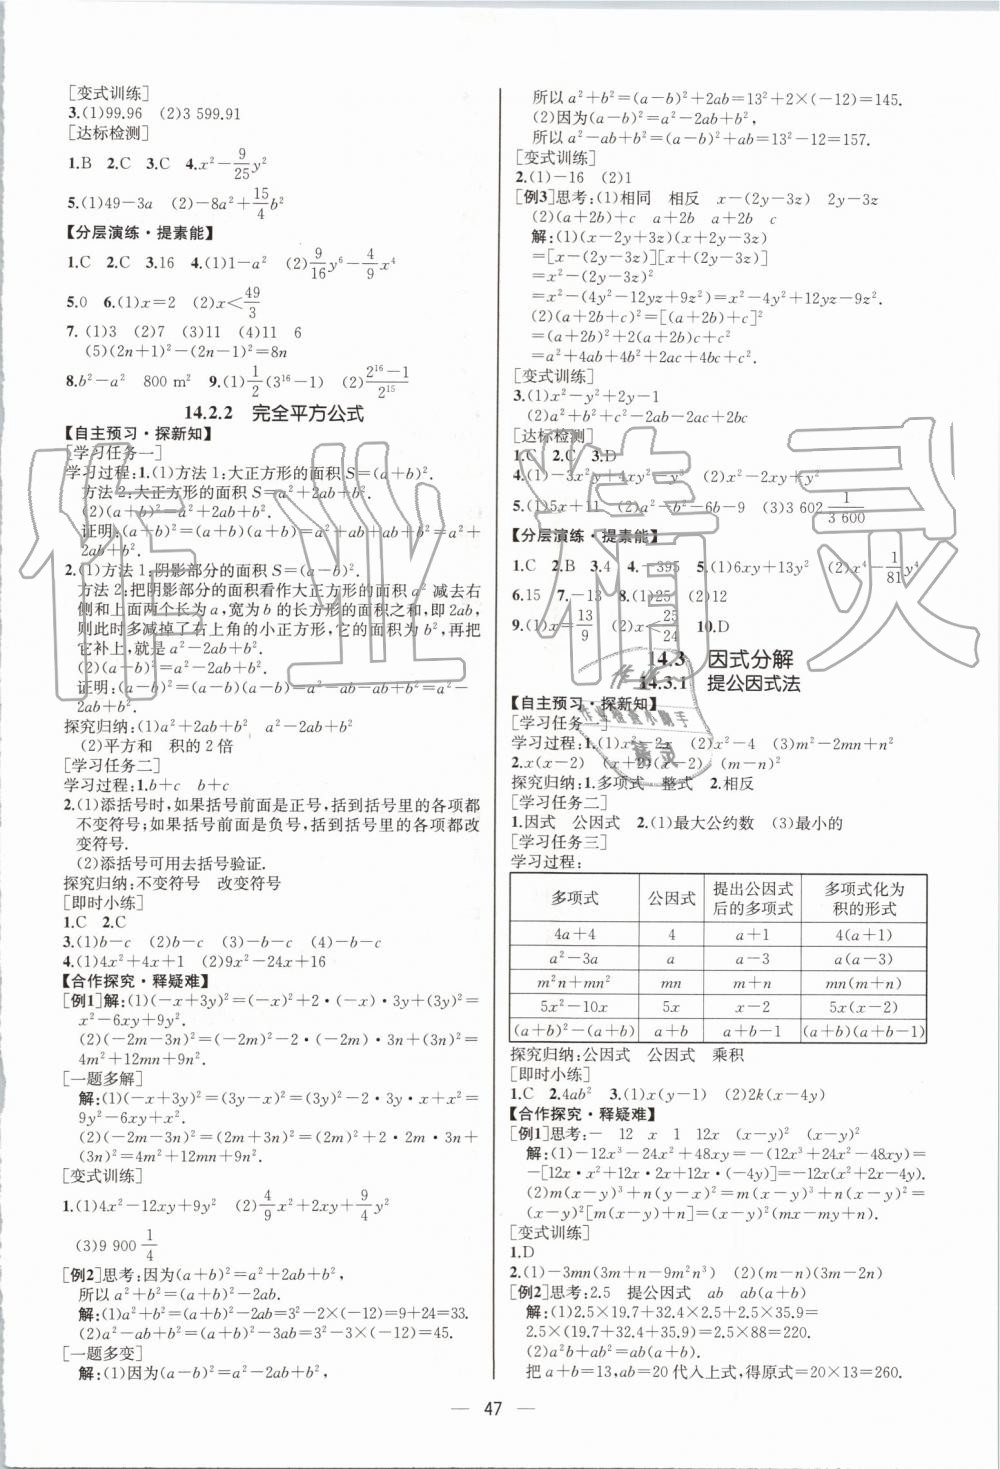 [变式训练]
3.(1)99.96　(2)3 599.91
[达标检测]
1.B　2.C　3.C　4.x²－9/25y²
5.(1)49－3a　(2)－8a²＋15/4b²
【分层演练·提素能】
1.C　2.C　3.16　4.(1)1－a²　(2)9/16y⁶－4/9x⁴
5.0　6.(1)x＝2　(2)x＜49/3
7.(1)3　(2)7　(3)11　(4)11　6
(5)(2n＋1)²－(2n－1)²＝8n
8.b²－a²　800 m²　9.(1)1/2(3¹⁶－1)　(2)2¹⁶－1/2¹⁵
14.2.2　完全平方公式
【自主预习·探新知】
[学习任务一]
学习过程:1.(1)方法1:大正方形的面积S＝(a＋b)².
方法2:大正方形的面积S＝a²＋2ab＋b².
(2)(a＋b)²＝a²＋2ab＋b².
证明:(a＋b)²＝(a＋b)(a＋b)＝a²＋ab＋ab＋b²＝a²＋
2ab＋b².
2.(1)方法1:阴影部分的面积S＝(a－b)².
方法2:把阴影部分的面积看作大正方形的面积a²减去右
侧和上面两个长为a,宽为b的长方形的面积之和,即2ab,
则此时多减掉了右上角的小正方形,它的面积为b²,再把
它补上,就是a²－2ab＋b².
(2)(a－b)²＝a²－2ab＋b².
证明:(a－b)²＝(a－b)(a－b)＝a²－ab－ab＋b²＝a²－
2ab＋b².
探究归纳:(1)a²＋2ab＋b²　a²－2ab＋b²
(2)平方和　积的2倍
[学习任务二]
学习过程:1.b＋c　b＋c
2.(1)添括号时,如果括号前面是正号,括到括号里的各项都
不变符号;如果括号前面是负号,括到括号里的各项都改
变符号.
(2)添括号可用去括号验证.
探究归纳:不变符号　改变符号
[即时小练]
1.C　2.C
3.(1)b－c　(2)b－c　(3)－b＋c　(4)－b＋c
4.(1)4x²＋4x＋1　(2)9x²－24x＋16
【合作探究·释疑难】
[例1]解:(1)(－x＋3y)²＝(－x)²＋2·(－x)·3y＋(3y)²＝
x²－6xy＋9y².
(2)(－2m－3n)²＝(－2m)²－2·(－2m)·3n＋(3n)²＝
4m²＋12mn＋9n².
[一题多解]
解:(1)(－x＋3y)²＝(3y－x)²＝(3y)²－2·3y·x＋x²＝
9y²－6xy＋x².
(2)(－2m－3n)²＝(2m＋3n)²＝(2m)²＋2·2m·3n＋
(3n)²＝4m²＋12mn＋9n².
[变式训练]
1.(1)4x²－12xy＋9y²　(2)4/9x²＋2xy＋9/4y²
(3)9 900 1/4
[例2]思考:因为(a＋b)²＝a²＋2ab＋b²,
所以a²＋b²＝(a＋b)²－2ab.
解:(1)a²＋b²＝(a＋b)²－2ab＝3²－2×(－12)＝9＋24＝33.
(2)a²－ab＋b²＝(a＋b)²－3ab＝3²－3×(－12)＝45.
[一题多变]
解:(1)因为(a－b)²＝a²－2ab＋b²,
所以a²＋b²＝(a－b)²＋2ab＝13²＋2×(－12)＝145.
(2)因为(a－b)²＝a²－2ab＋b²,
所以a²－ab＋b²＝(a－b)²＋ab＝13²－12＝157.
[变式训练]
2.(1)－16　(2)1
[例3]思考:(1)相同　相反　x－(2y－3z)　2y－3z
(2)(a＋2b)＋c　a＋2b　a＋2b　c
解:(1)(x－2y＋3z)(x＋2y－3z)
＝[x－(2y－3z)][x＋(2y－3z)]
＝x²－(2y－3z)²
＝x²－(4y²－12yz＋9z²)＝x²－4y²＋12yz－9z².
(2)(a＋2b＋c)²＝[(a＋2b)＋c]²
＝(a＋2b)²＋2(a＋2b)c＋c²
＝a²＋4ab＋4b²＋2ac＋4bc＋c².
[变式训练]
3.(1)x²－y²＋2y－1
(2)a²＋b²＋c²－2ab－2ac＋2bc
[达标检测]
1.C　2.C　3.D
4.(1)－3x²y＋4xy²－y³　(2)x²－2xy＋y²
5.(1)5x＋11　(2)a²－b²－6b－9　(3)3 602 1/3 600
【分层演练·提素能】
1.C　2.B　3.4　4.－395　5.(1)6xy＋13y²　(2)x⁴－1/81y⁴
6.15　7.－13　8.(1)25　(2)12
9.(1)x＝13/9　(2)x＝25/24　10.D
14.3　因式分解
14.3.1　提公因式法
【自主预习·探新知】
[学习任务一]
学习过程:1.(1)x²－2x　(2)x²－4　(3)m²－2mn＋n²
2.x(x－2)　(x＋2)(x－2)　(m－n)²
探究归纳:1.多项式　整式　2.相反
[学习任务二]
1.因式　公因式　2.(1)最大公约数　(3)最小的
[学习任务三]
学习过程:
多项式　公因式　提出公因式后的多项式　多项式化为积的形式
4a＋4　4　a＋1　4(a＋1)
a²－3a　a　a－3　a(a－3)
m²n＋mn²　mn　m＋n　mn(m＋n)
5x²－10x　5x　x－2　5x(x－2)
(a＋b)²－(a＋b)　a＋b　a＋b－1　(a＋b)(a＋b－1)
探究归纳:公因式　公因式　乘积
[即时小练]
1.C　2.4ab²　3.(1)x(y－1)　(2)2k(x－4y)
【合作探究·释疑难】
[例1]思考:－　12　x　1　12x　(x－y)²　(x－y)²
解:(1)－12x³－24x²＋48xy＝－(12x³＋24x²－48xy)＝
－[12x·x²＋12x·2x＋12x·(－4y)]＝－12x(x²＋2x－4y).
(2)m(x－y)³＋n(y－x)²＝m(x－y)³＋n(x－y)²＝
(x－y)²[m(x－y)＋n]＝(x－y)²(mx－my＋n).
[变式训练]
1.D
2.(1)－3mn(3m＋n－9m²n³)　(2)(m－n)(3m－2n)
[例2]思考:2.5　提公因式　ab　ab(a＋b)
解:(1)2.5×19.7＋32.4×2.5＋2.5×35.9＝
2.5×(19.7＋32.4＋35.9)＝2.5×88＝220.
(2)a²b＋ab²＝ab(a＋b).
把a＋b＝13,ab＝20代入上式,得原式＝20×13＝260.
— 47 —
作业精灵
作业检查小助手
精灵